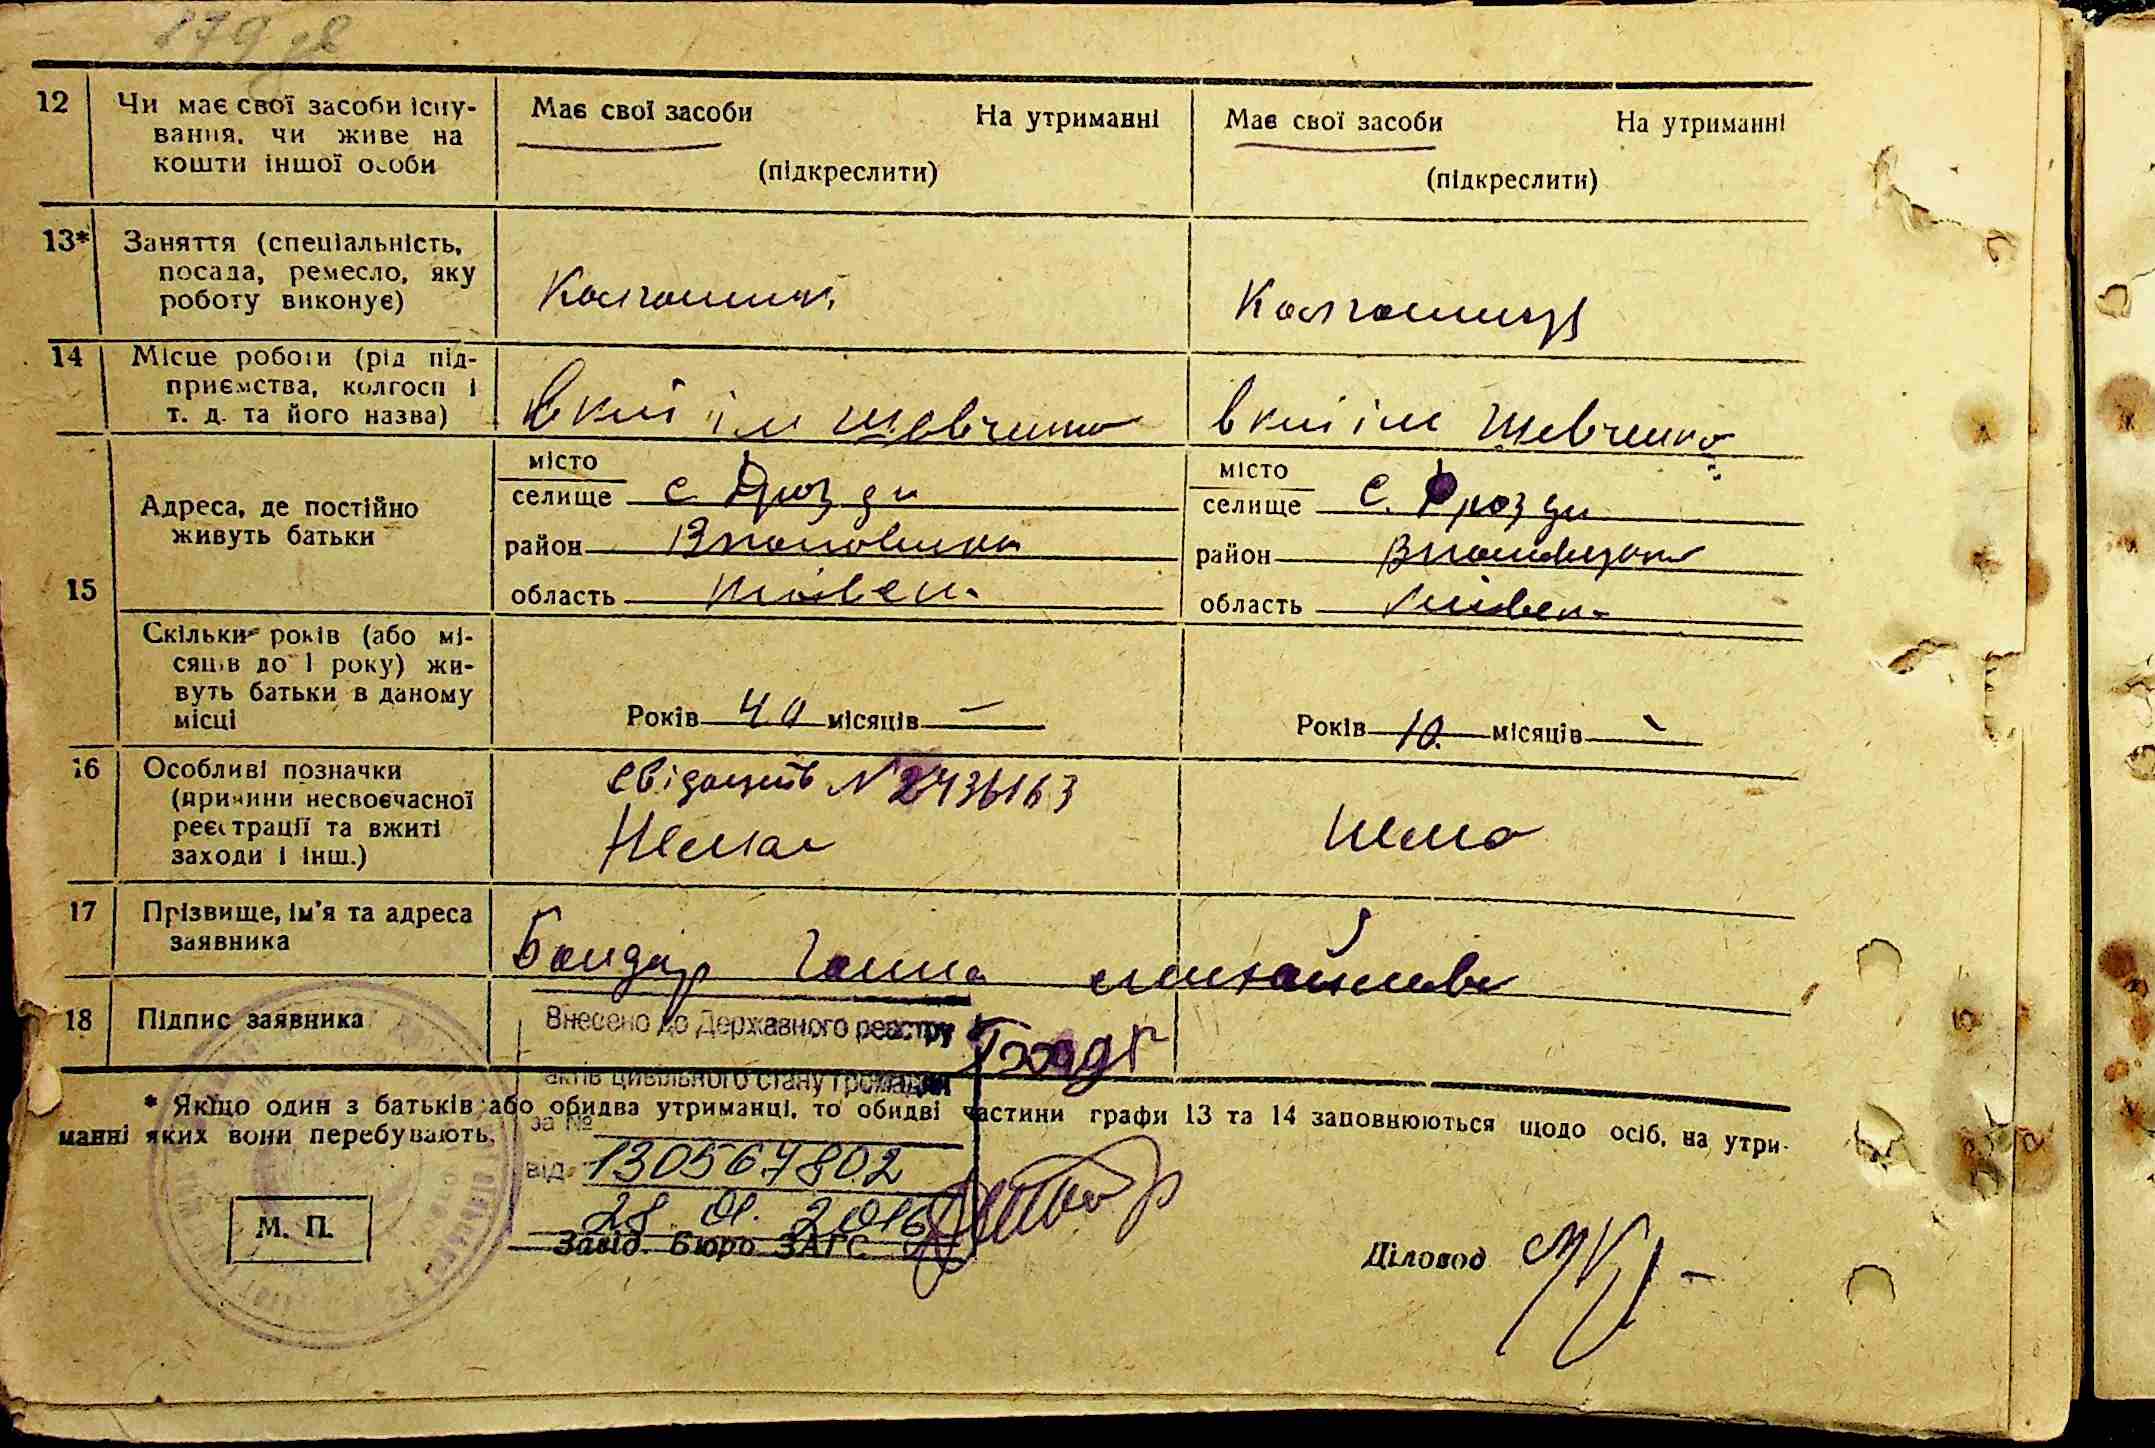 179 зв
12 Чи має свої засоби існу-
вання, чи живе на
кошти іншої особи
Має свої засоби На утриманні
(підкреслити)
Має свої засоби На утриманні
(підкреслити)
13* Заняття (спеціальність,
посада, ремесло, яку
роботу виконує)
Колгоспник
Колгоспниця
14 Місце роботи (рід під-
приємства, колгосп і
т. д. та його назва)
ім Шевченка
ім Шевченка
15 Адреса, де постійно
живуть батьки
місто
селище с Дрозди
район
область Київськ.
місто
селище с. Дрозди
район
область Київськ.
Скільки років (або мі-
сяців до 1 року) жи-
вуть батьки в даному
місці
Років 40 місяців —
Років 10. місяців -
16 Особливі позначки
(причини несвоєчасної
реєстрації та вжиті
заходи і інш.)
Свідоцтв № 2436163
Немає
Нема
17 Прізвище, ім'я та адреса
заявника
Бондар Ганна Михайлівн
18 Підпис заявника
Внесено до Державного реєстру
актів цивільного стану громадян
за №
130567802
від
28. 01. 2016
* Якщо один з батьків або обидва утриманці, то обидві частини графи 13 та 14 заповнюються щодо осіб, на утри-
манні яких вони перебувають.
М. П.
Завід. Бюро ЗАГС
Діловод